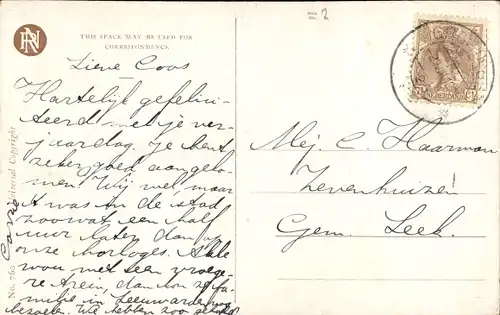 THIS SPACE MAY BE USED FOR
CORRESPONDENCE
Lieve Coos
Hartelijk gefelici-
teerd met je ver-
jaardag. Je bent
zeker goed aangeko-
men. Wij wel, maar
t was in de stad
zoowat een half
uur later dan op
onze horloges. Als
wou met een vroege-
re trein, dan kon ze fa-
milie in Leeuwarden nog
bezoeken. We hebben zoo
Mej. C. Haarman
Zevenhuizen
Gem. Leek.
No. 760
International Copyright